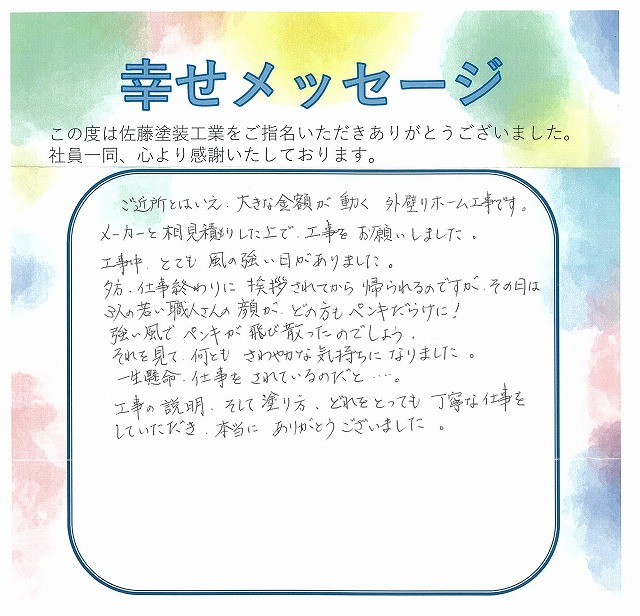 幸せメッセージ
この度は佐藤塗装工業をご指名いただきありがとうございました。
社員一同、心より感謝いたしております。
ご近所とはいえ、大きな金額が動く 外壁リホーム工事です。
メーカーと相見積もりした上で、工事をお願いしました。
工事中、とても風の強い日がありました。
夕方、仕事終わりに挨拶されてから帰られるのですが、その日は
3人の若い職人さんの顔が、どの方もペンキだらけに！
強い風でペンキが飛び散ったのでしょう。
それを見て、何とも さわやかな気持ちになりました。
一生懸命、仕事をされているのだと…。
工事の説明、そして塗り方、どれをとっても丁寧な仕事を
していただき、本当に ありがとうございました。